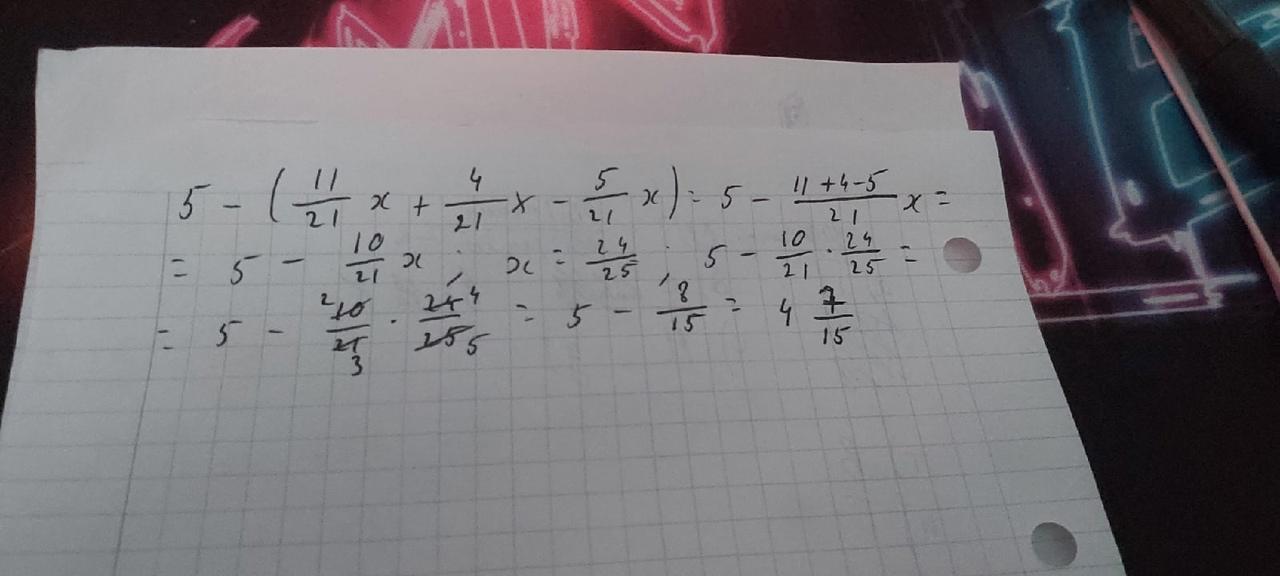 5 - (11/21 x + 4/21 x - 5/21 x) = 5 - (11+4-5)/21 x =
= 5 - 10/21 x ; x = 24/25 ; 5 - 10/21 · 24/25 =
= 5 - 2 10/21 3 · 24 4/25 5 = 5 - 8/15 = 4 7/15